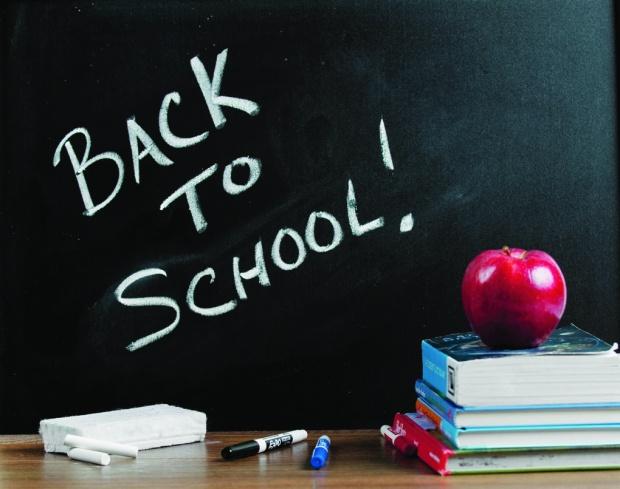 BACK
TO
SCHOOL!
EXPO